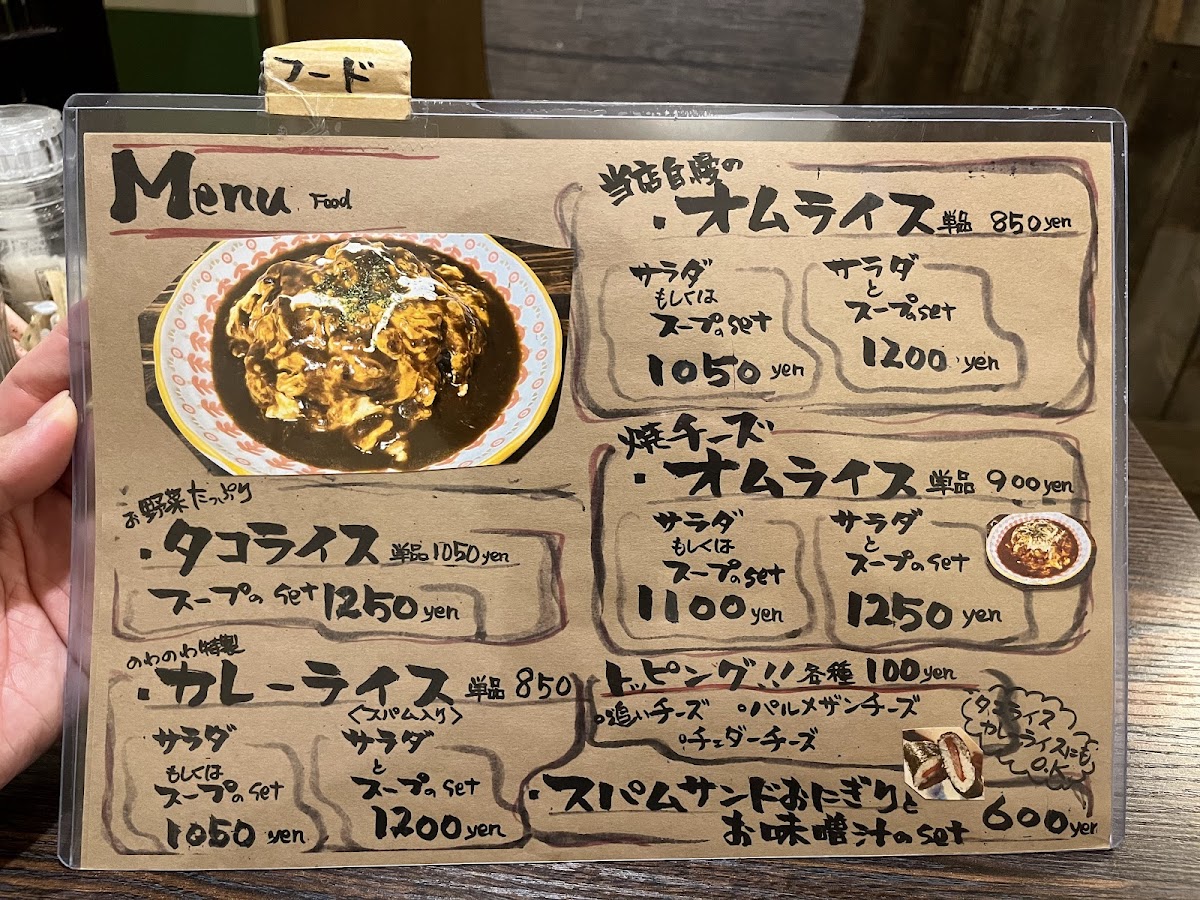 フード
Menu Food
お野菜たっぷり
・タコライス 単品1050yen
スープのset 1250yen
のわのわ特製
・カレーライス 単品 850
〈スパム入り〉
サラダ
もしくは
スープのset
1050 yen
サラダ
と
スープのset
1200yen
当店自慢の
・オムライス 単品 850yen
サラダ
もしくは
スープのset
1050 yen
サラダ
と
スープのset
1200 yen
焼チーズ
・オムライス 単品 900yen
サラダ
もしくは
スープのset
1100 yen
サラダ
と
スープのset
1250 yen
トッピング!! 各種 100yen
○追いチーズ ○パルメザンチーズ
○チェダーチーズ
タコライス
カレーライスにも
O.K
・スパムサンドおにぎりと
お味噌汁のset 600yen